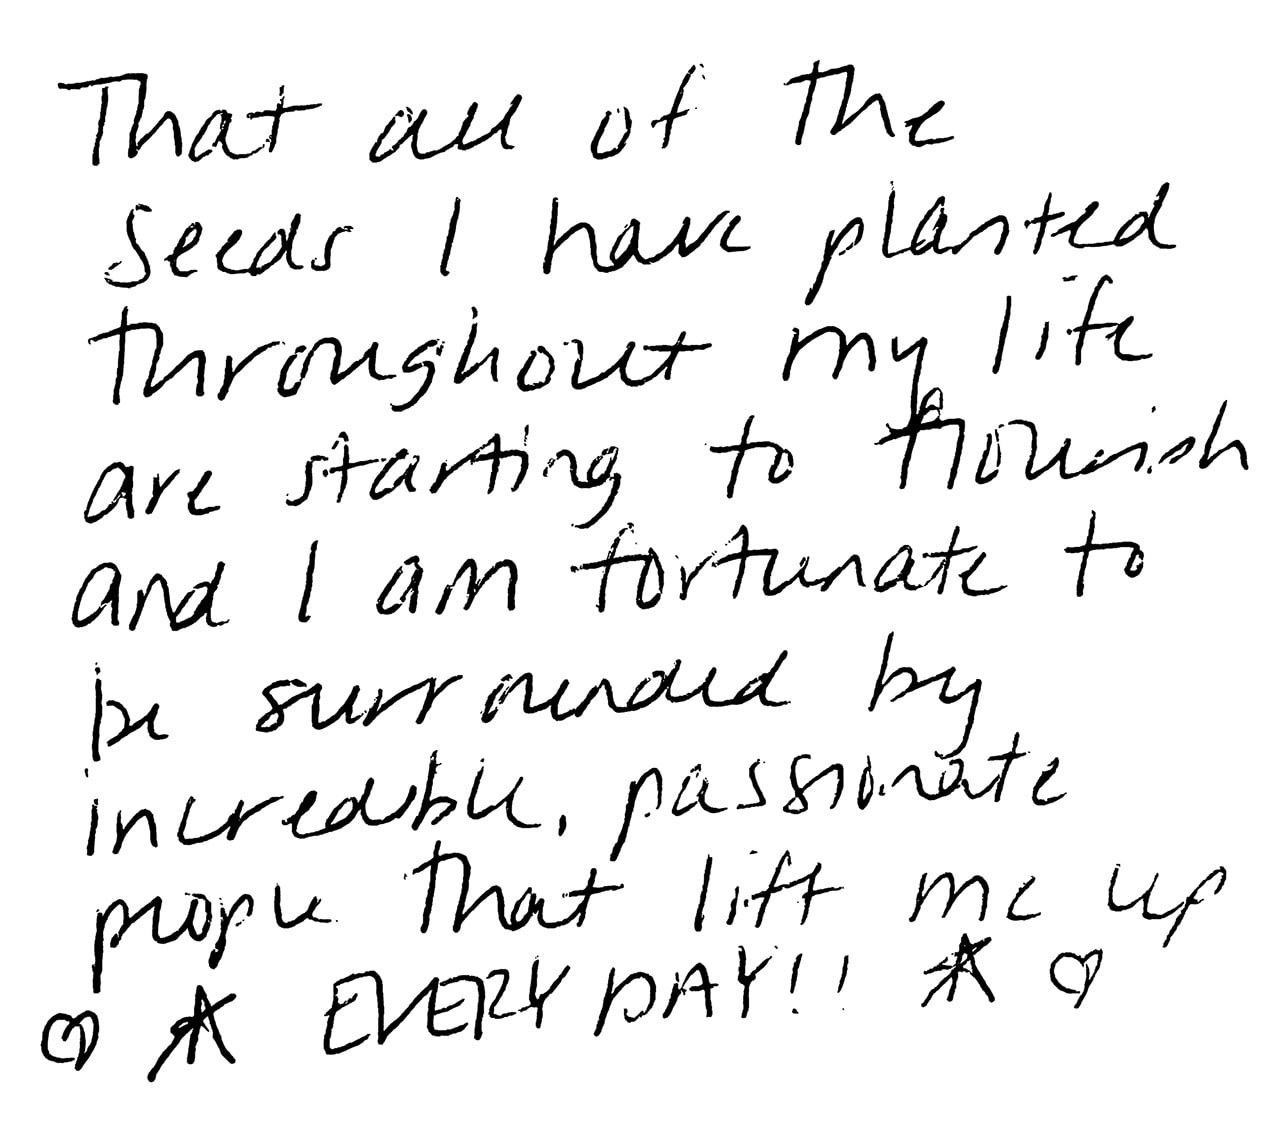 That all of the
seeds I have planted
throughout my life
are starting to flourish
and I am fortunate to
be surrounded by
incredible, passionate
people that lift me up
♡ ☆ EVERY DAY!! ☆ ♡